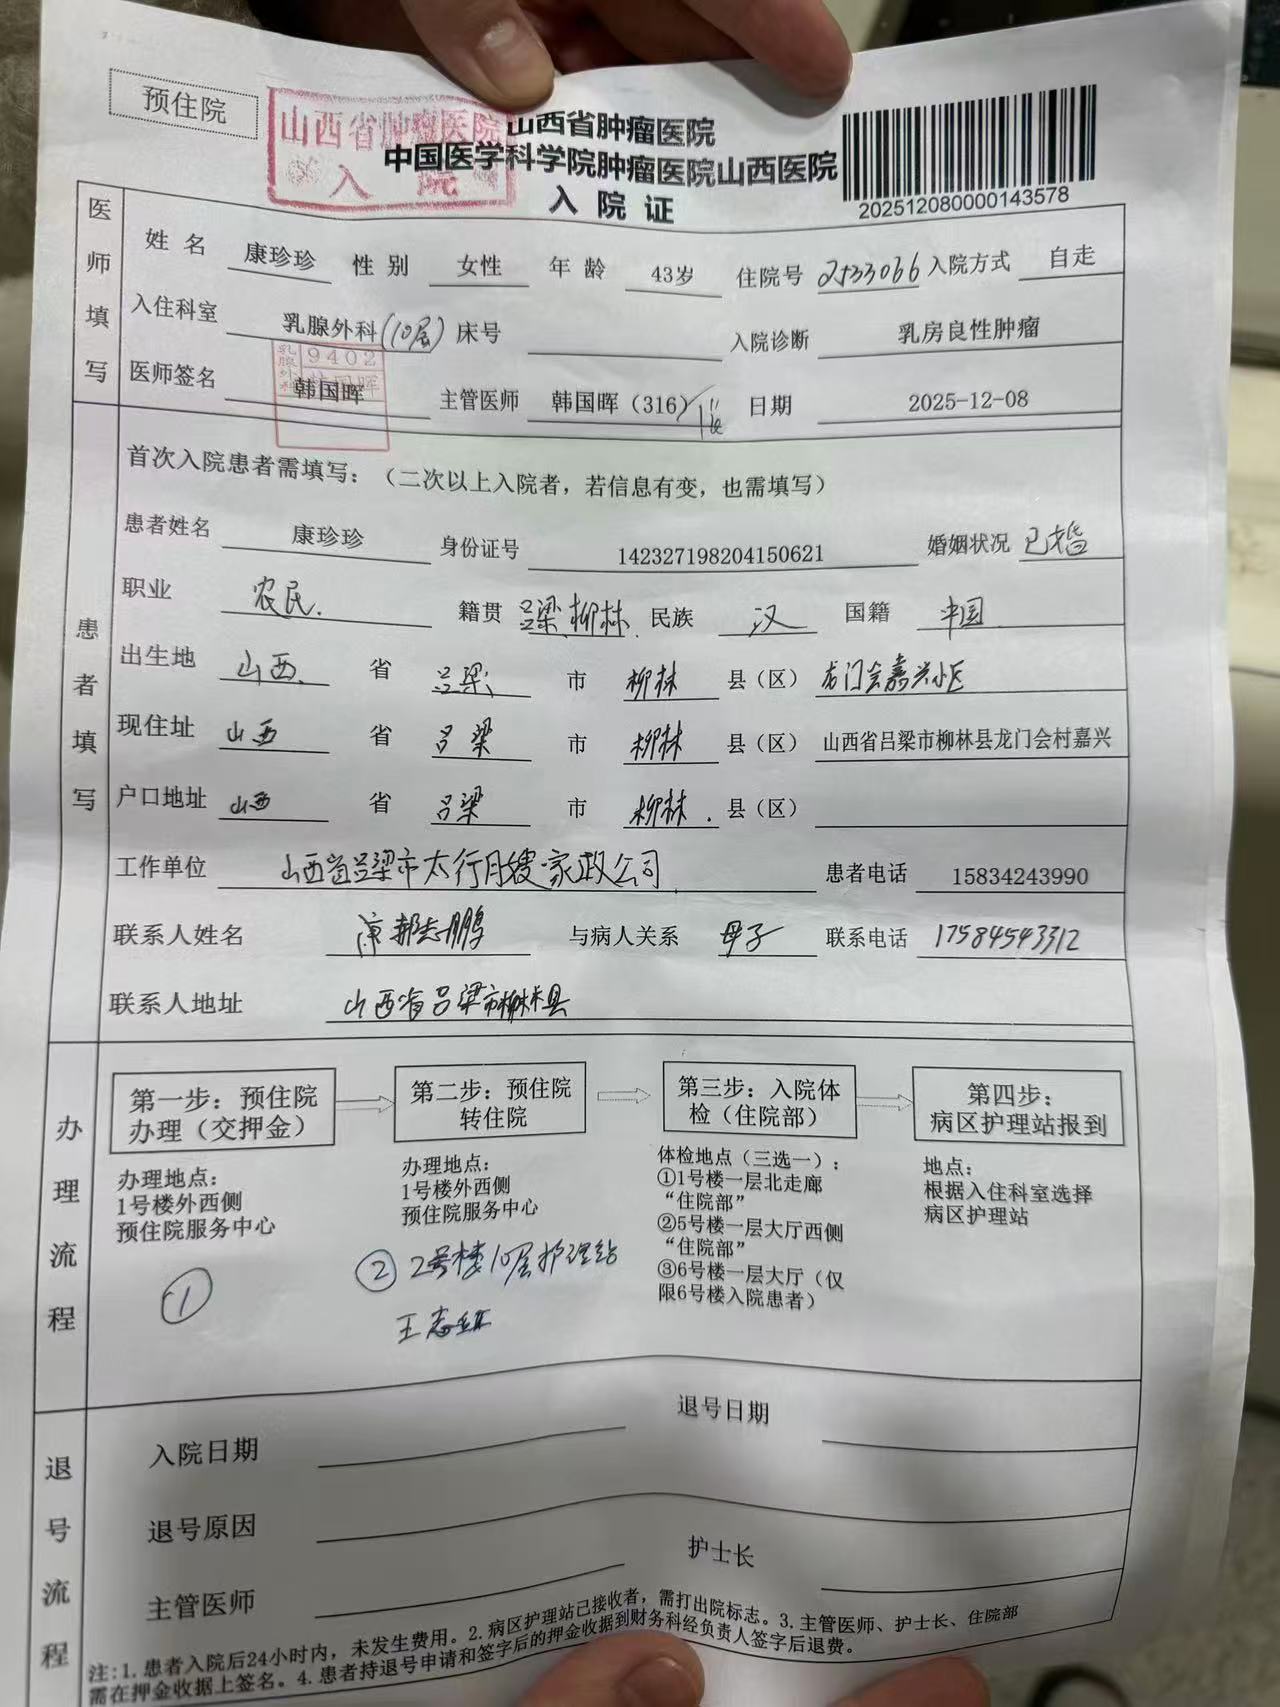 预住院
山西省肿瘤医院
入院
山西省肿瘤医院
中国医学科学院肿瘤医院山西医院
入院证
202512080000143578
医师填写
姓名 康珍珍 性别 女性 年龄 43岁 住院号 2533066 入院方式 自走
入住科室 乳腺外科(10层) 床号 入院诊断 乳房良性肿瘤
乳腺外科 9402 韩国晖
医师签名 韩国晖 主管医师 韩国晖(316) 日期 2025-12-08
患者填写
首次入院患者需填写:(二次以上入院者,若信息有变,也需填写)
患者姓名 康珍珍 身份证号 142327198204150621 婚姻状况 已婚
职业 农民. 籍贯 吕梁柳林. 民族 汉 国籍 中国
出生地 山西. 省 吕梁 市 柳林 县(区) 龙门会嘉兴小区
现住址 山西 省 吕梁 市 柳林 县(区) 山西省吕梁市柳林县龙门会村嘉兴
户口地址 山西 省 吕梁 市 柳林. 县(区)
工作单位 山西省吕梁市太行月嫂家政公司 患者电话 15834243990
联系人姓名 郝志鹏 与病人关系 母子 联系电话 17584543312
联系人地址 山西省吕梁市柳林县
办理流程
第一步:预住院办理(交押金)
第二步:预住院转住院
第三步:入院体检(住院部)
第四步:病区护理站报到
办理地点:
1号楼外西侧
预住院服务中心
①
办理地点:
1号楼外西侧
预住院服务中心
② 2号楼10层护理站
体检地点(三选一):
①1号楼一层北走廊
“住院部”
②5号楼一层大厅西侧
“住院部”
③6号楼一层大厅(仅
限6号楼入院患者)
地点:
根据入住科室选择
病区护理站
退号流程
入院日期 退号日期
退号原因
主管医师 护士长
注:1.患者入院后24小时内,未发生费用。2.病区护理站已接收者,需打出院标志。3.主管医师、护士长、住院部
需在押金收据上签名。4.患者持退号申请和签字后的押金收据到财务科经负责人签字后退费。